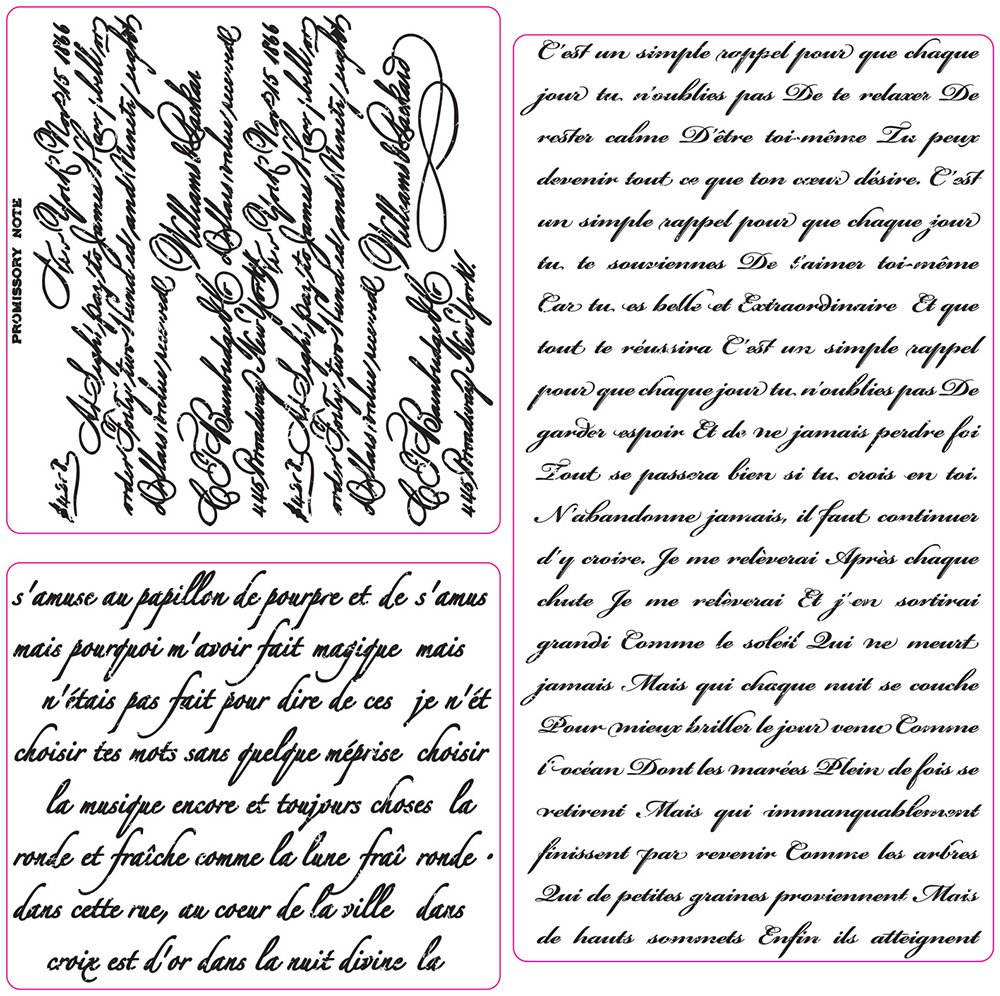 PROMISSORY NOTE
New York Nov 15 1866
At Sight pay to James J. Campbell on
order Forty two Hundred and Ninety eight
Dollars value received
Williams & Parker
Dollars value received
445 Broadway New York
New York Nov 15 1866
At Sight pay to James J. Campbell on
order Forty two Hundred and Ninety eight
Dollars value received
Williams &
445 Broadway New York.
s'amuse au papillon de pourpre et de s'amus
mais pourquoi m'avoir fait magique mais
n'étais pas fait pour dire de ces je n'ét
choisir tes mots sans quelque méprise choisir
la musique encore et toujours choses la
ronde et fraîche comme la lune fraî ronde •
dans cette rue, au coeur de la ville dans
croix est d'or dans la nuit divine la
C'est un simple rappel pour que chaque
jour tu n'oublies pas De te relaxer De
rester calme D'être toi-même Tu peux
devenir tout ce que ton cœur désire. C'est
un simple rappel pour que chaque jour
tu te souviennes De t'aimer toi-même
Car tu es belle et Extraordinaire Et que
tout te réussira C'est un simple rappel
pour que chaque jour tu n'oublies pas De
garder espoir Et de ne jamais perdre foi
Tout se passera bien si tu crois en toi.
N'abandonne jamais, il faut continuer
d'y croire. Je me relèverai Après chaque
chute Je me relèverai Et j'en sortirai
grandi Comme le soleil Qui ne meurt
jamais Mais qui chaque nuit se couche
Pour mieux briller le jour venu Comme
l'océan Dont les marées Plein de fois se
retirent Mais qui immanquablement
finissent par revenir Comme les arbres
Qui de petites graines proviennent Mais
de hauts sommets Enfin ils atteignent